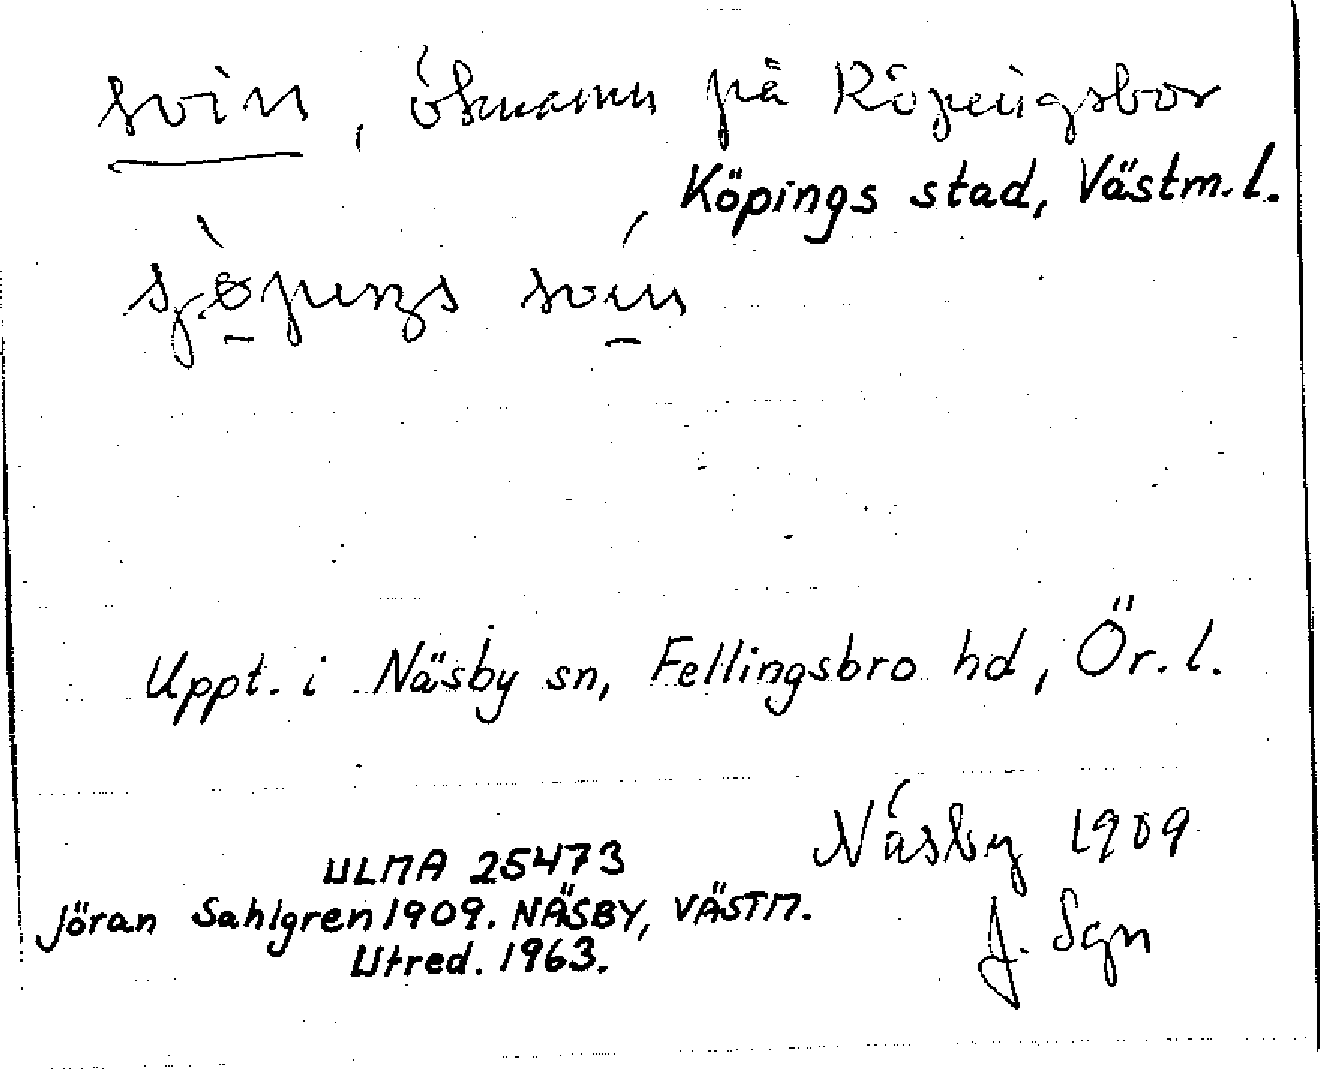 svin, öknamn på Köpingsbor
Köpings stad, Västm. l.
svin
Uppt. i Näsby sn, Fellingsbro hd, Ör. l.
Näsby 1909
J. Sgn
ULMA 25473
Jöran Sahlgren 1909. NÄSBY, VÄSTM.
Utred. 1963.